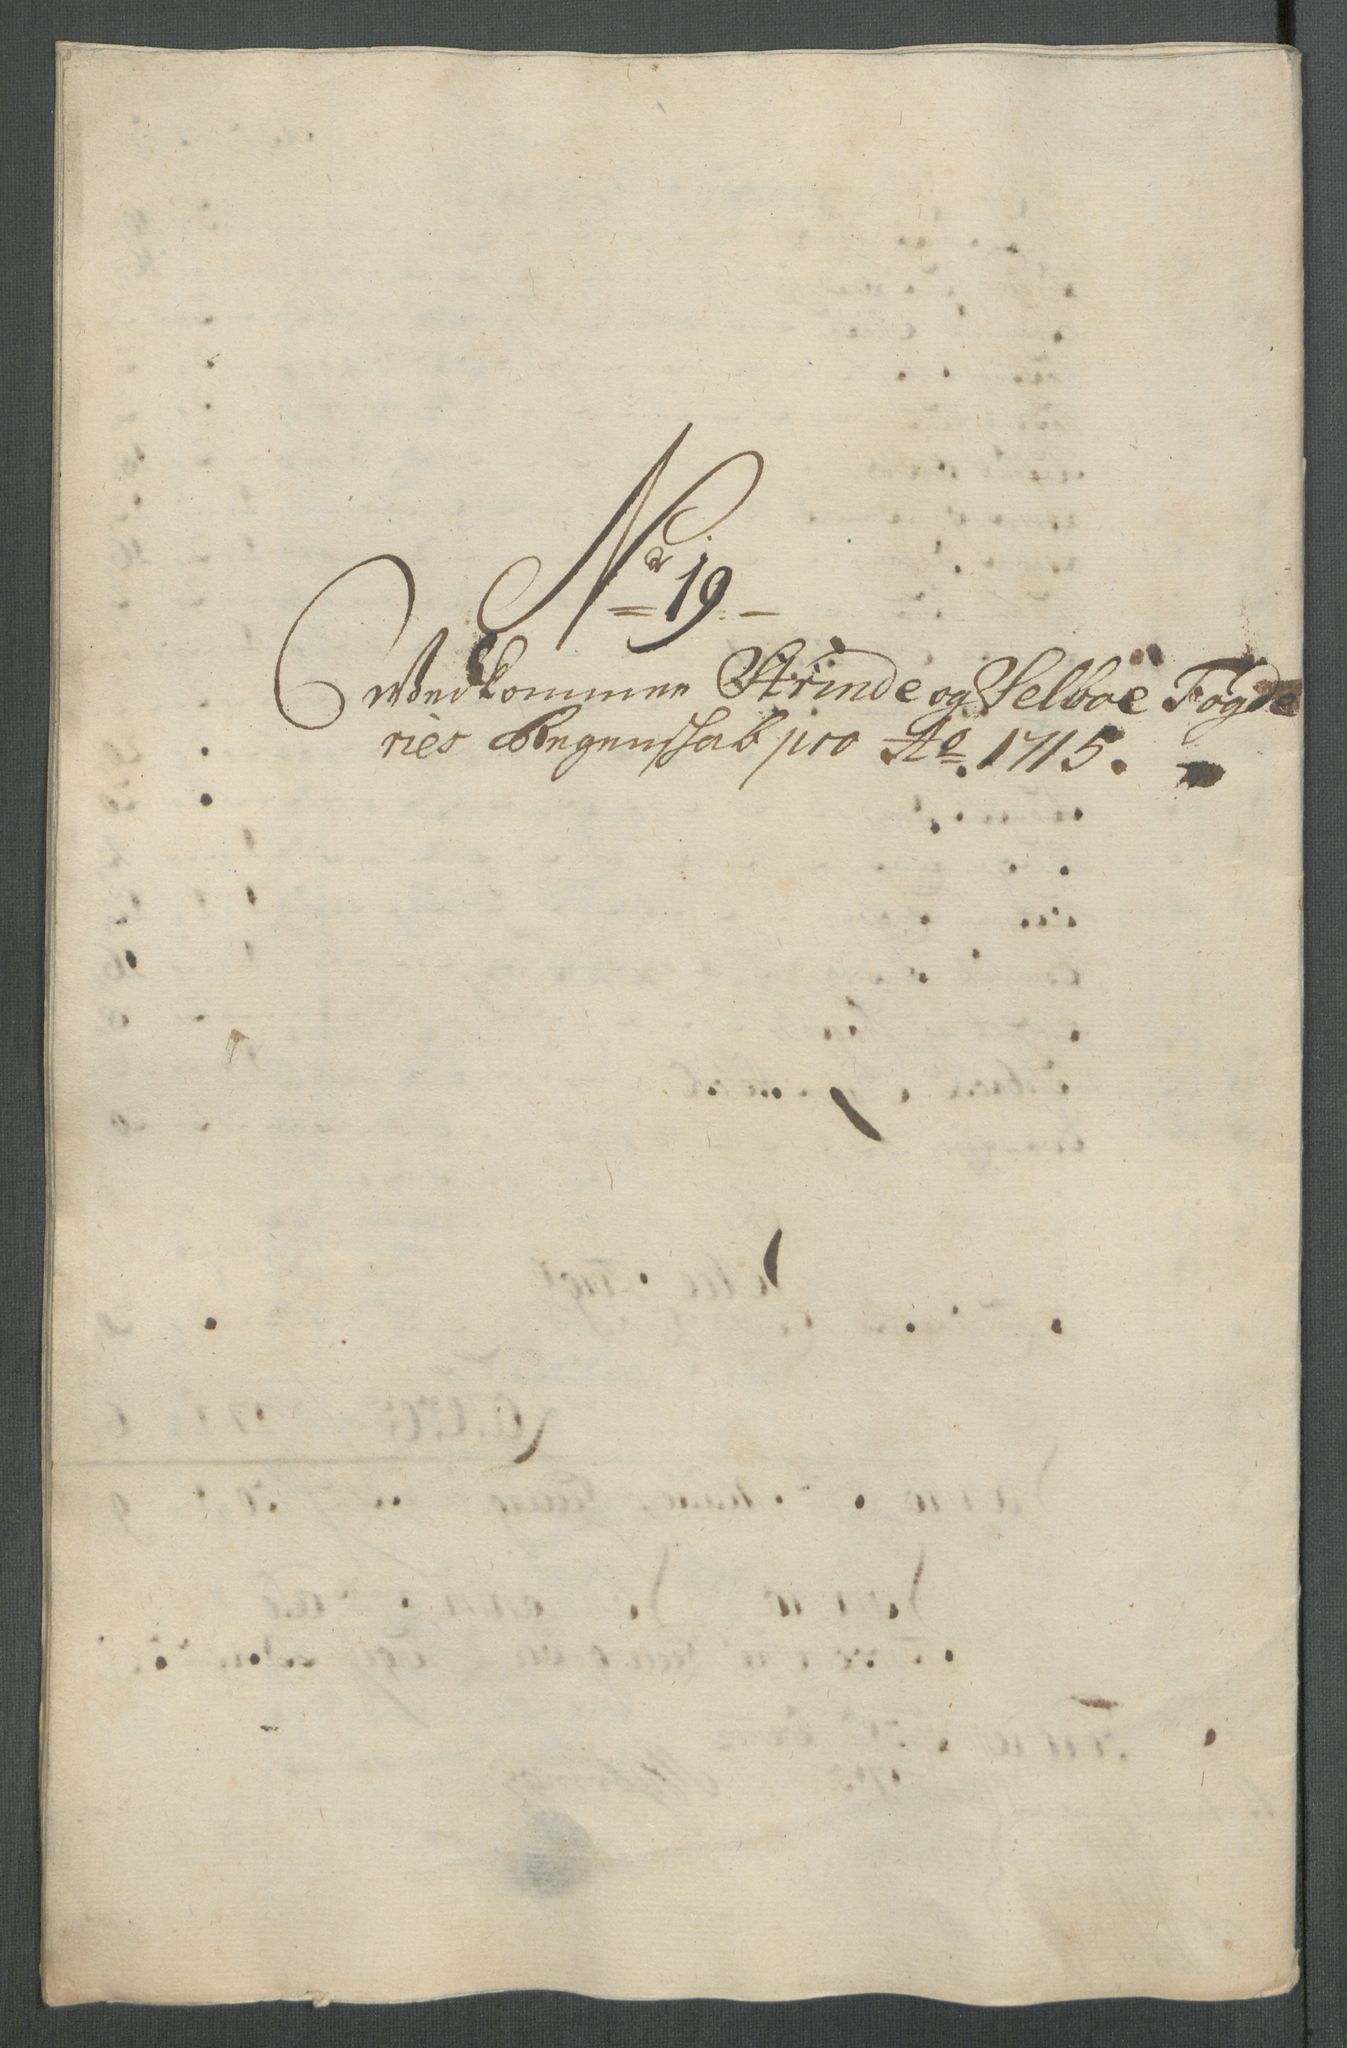 No 19
Vedkommer Strinde og Selboe Fogde
ries Regenskab pro Ao. 1715.